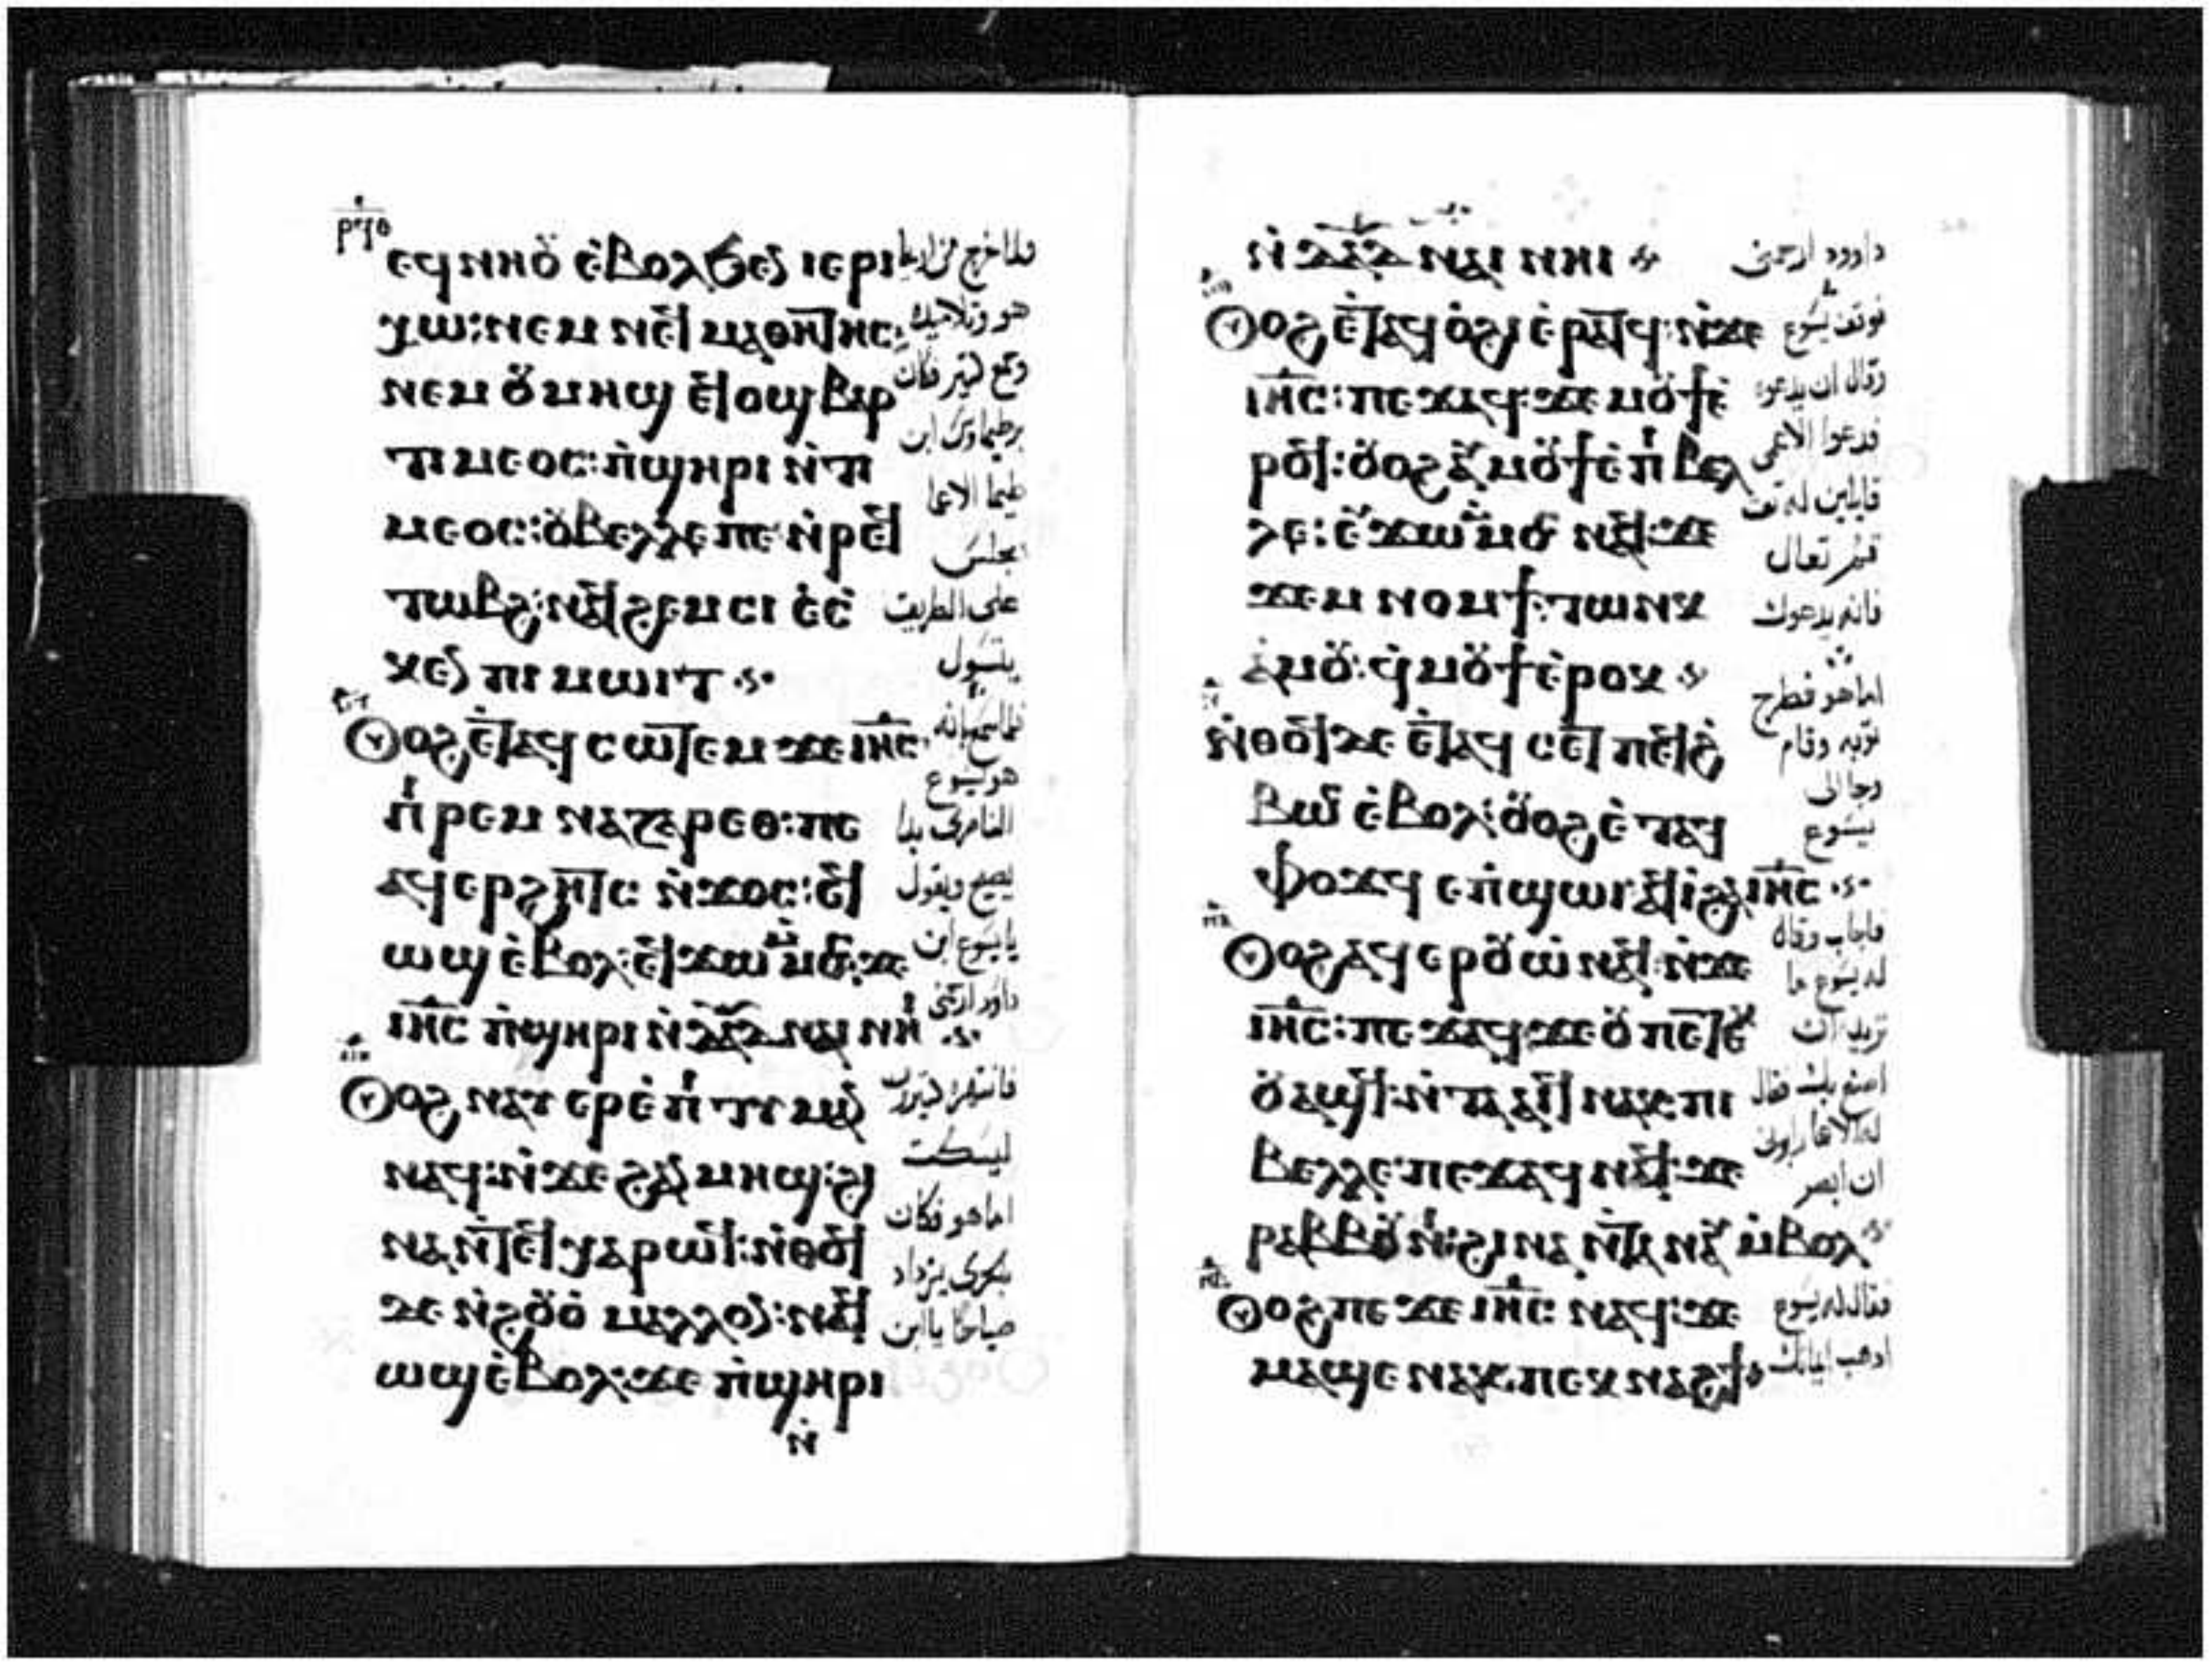 ⲉϥⲛⲏⲟⲩ ⲉ̀ⲃⲟⲗϧⲉⲛ ⲓⲉⲣⲓ
ⲭⲱ: ⲛⲉⲙ ⲛⲉϥ ⲙⲁⲑⲏⲧⲏⲥ:
ⲛⲉⲙ ⲟⲩⲙⲏϣ ⲉϥⲟϣ ⲃⲁⲣ
ⲧⲓⲙⲉⲟⲥ: ⲡ̀ϣⲏⲣⲓ ⲛ̀ⲧⲓ
ⲙⲉⲟⲥ: ⲟⲩⲃⲉⲗⲗⲉ ⲡⲉ ⲛ̀ⲣⲉϥ
ⲧⲱⲃϩ: ⲛⲁϥϩⲉⲙⲥⲓ ⲉ̀ⲥ
ⲕⲉⲛ ⲡⲓ ⲙⲱⲓⲧ
ⲟⲩⲟϩ ⲉ̀ⲧⲁϥ ⲥⲱⲧⲉⲙ ϫⲉ ⲓⲏⲥ
ⲡⲓⲣⲉⲙ ⲛⲁⲍⲁⲣⲉⲑ: ⲡⲉ
ⲁϥⲉⲣϩⲏⲧⲥ ⲛ̀ϫⲟⲥ: ⲉϥ
ⲱϣ ⲉ̀ⲃⲟⲗ: ⲉϥϫⲱ ⲙ̀ⲙⲟⲥ: ϫⲉ
ⲓⲏⲥ ⲡ̀ϣⲏⲣⲓ ⲛ̀ⲇⲁⲇ ⲛⲁⲓ ⲛⲏⲓ
ⲟⲩⲟϩ ⲛⲁⲩ ⲉⲣⲉ̀ⲡⲓⲧⲓⲙⲁⲛ
ⲛⲁϥ: ⲛ̀ϫⲉ ϩⲁⲛ ⲙⲏϣ: ϩⲓ
ⲛⲁ ⲛ̀ⲧⲉϥ ⲭⲁⲣⲱϥ: ⲛ̀ⲑⲟϥ
ⲇⲉ ⲛ̀ϩⲟⲩⲟ̀ ⲙⲁⲗⲗⲟⲛ: ⲛⲁϥ
ⲱϣ ⲉ̀ⲃⲟⲗ: ϫⲉ ⲡ̀ϣⲏⲣⲓ
ⲛ̀
فلما خرج من اريحا
هو وتلاميذه
وجمع كثير فكان
برطيماوس ابن
طيما الاعما
يجلس
على الطريق
يتسول
فلما سمع انه
هو يسوع
الناصرى بدا
يصيح ويقول
يا يسوع ابن
داود ارحمنى
فانتهره كثيرون
ليسكت
اما هو فكان
بالحرى يزداد
صياحا يا ابن
ⲛ̀ ⲇⲁⲇ ⲛⲁⲓ ⲛⲏⲓ
ⲟⲩⲟϩ ⲉ̀ⲧⲁϥ ⲟ̀ϩⲓ ⲉ̀ⲣⲁⲧϥ: ⲛ̀ϫⲉ
ⲓⲏⲥ: ⲡⲉϫⲁϥ: ϫⲉ ⲙⲟⲩϯ ⲉ̀
ⲣⲟϥ: ⲟⲩⲟϩ ⲁⲩ ⲙⲟⲩϯ ⲉ̀ ⲡⲓ ⲃⲉⲗ
ⲗⲉ: ⲉⲩϫⲱ ⲙ̀ⲙⲟⲥ ⲛⲁϥ: ϫⲉ
ϫⲉⲙ ⲛⲟⲙϯ: ⲧⲱⲛⲕ
ⲁ̀ⲙⲟⲩ: ϥ̀ⲙⲟⲩϯ ⲉ̀ⲣⲟⲕ
ⲛ̀ⲑⲟϥ ⲇⲉ ⲉ̀ⲧⲁϥ ⲥⲉⲧ ⲡⲉϥϩ̀
ⲃⲱⲥ ⲉ̀ⲃⲟⲗ: ⲟⲩⲟϩ ⲉ̀ⲧⲁϥ
ϥⲟϫϥ ⲉⲡ̀ϣⲱⲓ ⲁϥⲓ̀ ϩⲁ ⲓⲏⲥ
ⲟⲩⲟϩ ⲁϥ ⲉⲣⲟⲩⲱ̀ ⲛⲁϥ: ⲛ̀ϫⲉ
ⲓⲏⲥ: ⲡⲉϫⲁϥ: ϫⲉ ⲟⲩ ⲡⲉⲧⲉⲕ
ⲟⲩⲁϣϥ: ⲛ̀ⲧⲁⲁⲓϥ ⲛⲁⲕ: ⲡⲓ
ⲃⲉⲗⲗⲉ: ⲡⲉϫⲁϥ ⲛⲁϥ: ϫⲉ
ⲣⲁⲃⲃⲟⲩⲛⲓ: ϩⲓⲛⲁ ⲛ̀ⲧⲁ ⲛⲁⲩ ⲙ̀ⲃⲟⲗ
ⲟⲩⲟϩ ⲡⲉϫⲉ ⲓⲏⲥ ⲛⲁϥ: ϫⲉ
ⲙⲁϣⲉ ⲛⲁⲕ: ⲡⲉⲕ ⲛⲁϩϯ
داوود ارحمنى
فوقف يسوع
وقال ان يدعوه
فدعوا الاعمى
قايلين له ثق
قم تعال
فانه يدعوك
اما هو فطرح
ثوبه وقام
وجا الى
يسوع
فاجاب وقال
له يسوع ما
تريد ان
اصنع بك فقال
له الاعما رابونى
ان ابصر
فقال له يسوع
اذهب ايمانك